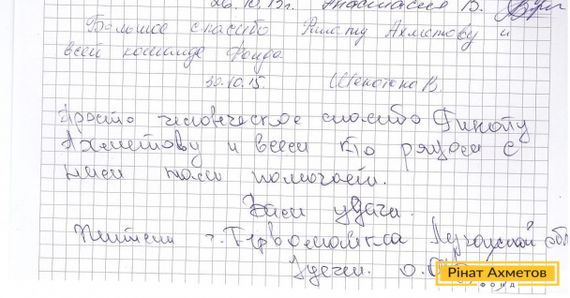 26.10.15г. В.
Большое спасибо Ринату Ахметову и
всей команде Фонда.
30.10.15. В.
Просто человеческое спасибо Ринату
Ахметову и всем кто рядом с
ним нам помогает.
Вам удачи.
Жители г. Первомайска Луганской обл
Рінат Ахметов
ФОНД